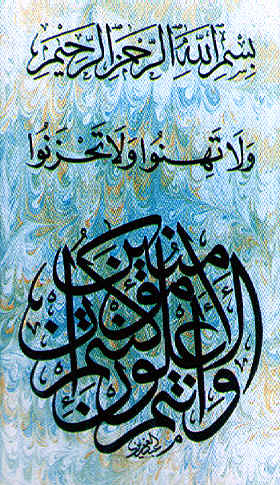 بِسْمِ اللَّهِ الرَّحْمَنِ الرَّحِيمِ
وَلَا تَهِنُوا وَلَا تَحْزَنُوا
وَأَنتُمُ الْأَعْلَوْنَ إِن كُنتُم مُّؤْمِنِينَ